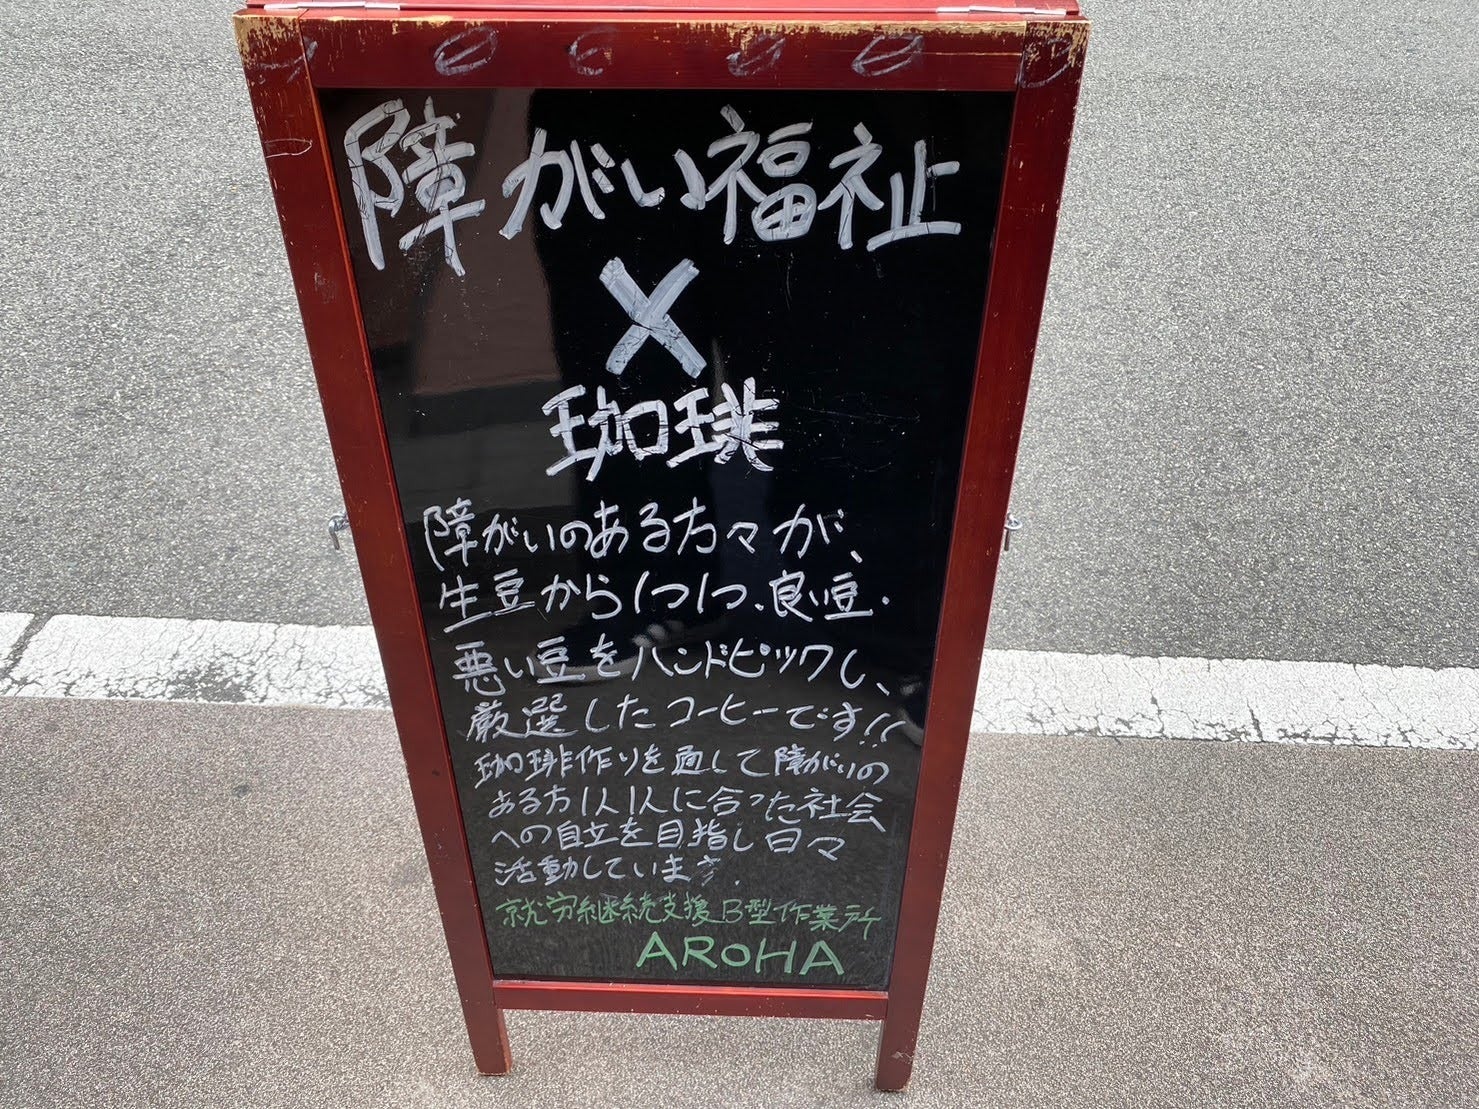 障がい福祉
×
珈琲
障がいのある方々が、
生豆から1つ1つ、良い豆・
悪い豆をハンドピックし、
厳選したコーヒーです!!
珈琲作りを通して障がいの
ある方1人1人に合った社会
への自立を目指し日々
活動しています.
就労継続支援B型作業所
AROHA